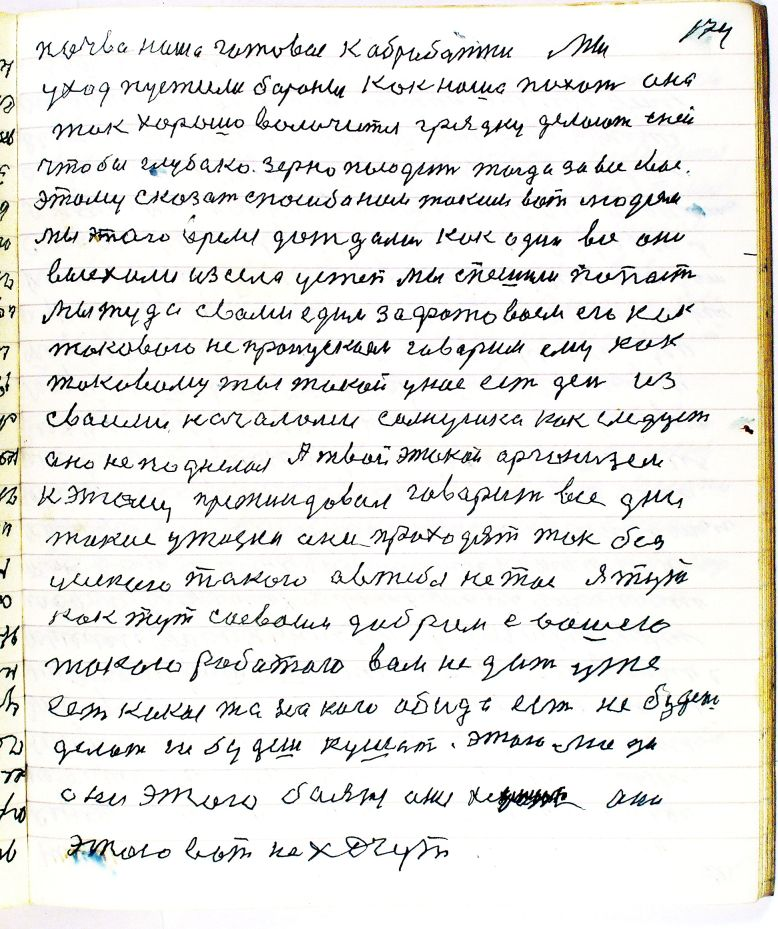 174
почва наша готовае к абработки Мы
уход пустили бароны как наша пахот она
так хорошо волочится грядку делают с ней
чтобы глубако. зерно
этому сказат спосиба ним таким вот людям
мы этого время дождали как один все они
выехали из села успет мы спешили попаст
мы туда свами едим зафотоваем его как
таковога не пропускаем говарим ему как
таковому ты такой унас ест ден из
своими началоми солнушка как следует
ано не поднелас А твой этакой организем
к этаму говарит все дни
такие ужасна они проходят так без
усякого такого автебя не тое Я тут
как тут соеваим добрим с вашего
такого работаго вам не дат уже
ест какое та на кого обида ест не будет
делат не будеш кушат. этого
они этого боятс они не они
этого вот не хочут